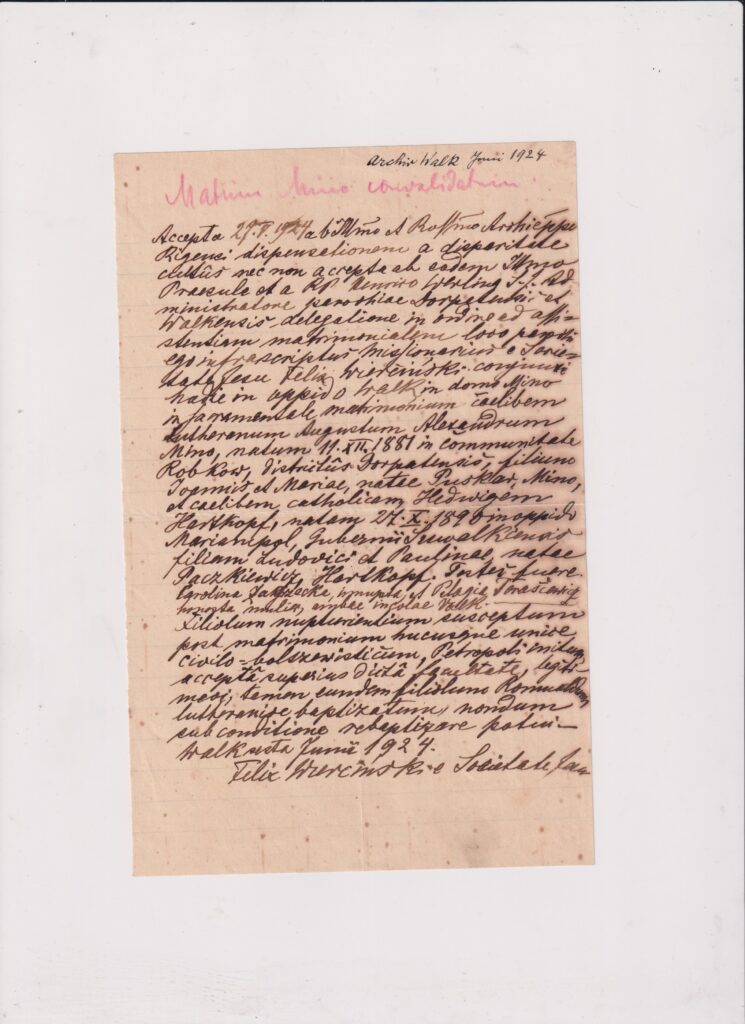 Archiv Walk Junii 1924
Matrim Mino convalidatum.
Accepta 27.V.1924 ab Illmo et Rssmo Archieppo
Rigensi dispensationem a disparitate
cultûs nec non accepta ab eodem Illmo
Praesule et a RP Henrico Werling S.J. Ad
ministratore parochiae Dorpatensis et
Walkensis delegatione in ordine ad assi-
stentiam matrimonialem loco
ego infrascriptus missionarius e Socie-
tate Jesu Felix Wiercinski conjunxi
hadie in oppido Walk in domo Mino
in sacramentale matrimonium caelibem
Lutheranum Augustum Alexandrum
Mino, natum 11.XII.1881 in communitate
Robkow, districtûs Dorpatensis, filium
Joannis et Mariae, natae Puskar, Mino,
et caelibem catholicam Hedwigem
Hartkopf, natam 27.X.1896 in oppido
Mariampol, Gubernii Suwalkiensis
filiam Ludovici et Paulinae, natae
Paczkiewicz, Hartkopf. Testes fuere
Carolina, innupta, et Pelagia
honesta mulier, ambae incolae Valk.
Filiolum nupturientium susceptum
post matrimonium hucusque unice
civilo-bolszewisticum, Petropoli initum
acceptâ superius dictâ facultate, legiti-
mavi, tamen eundem filiolum Romualdum
lutheranice baptizatum, nondum
sub conditione rebaptizare potui-
Walk sexta Junii 1924.
Felix Wiercinski e Societate Jesu